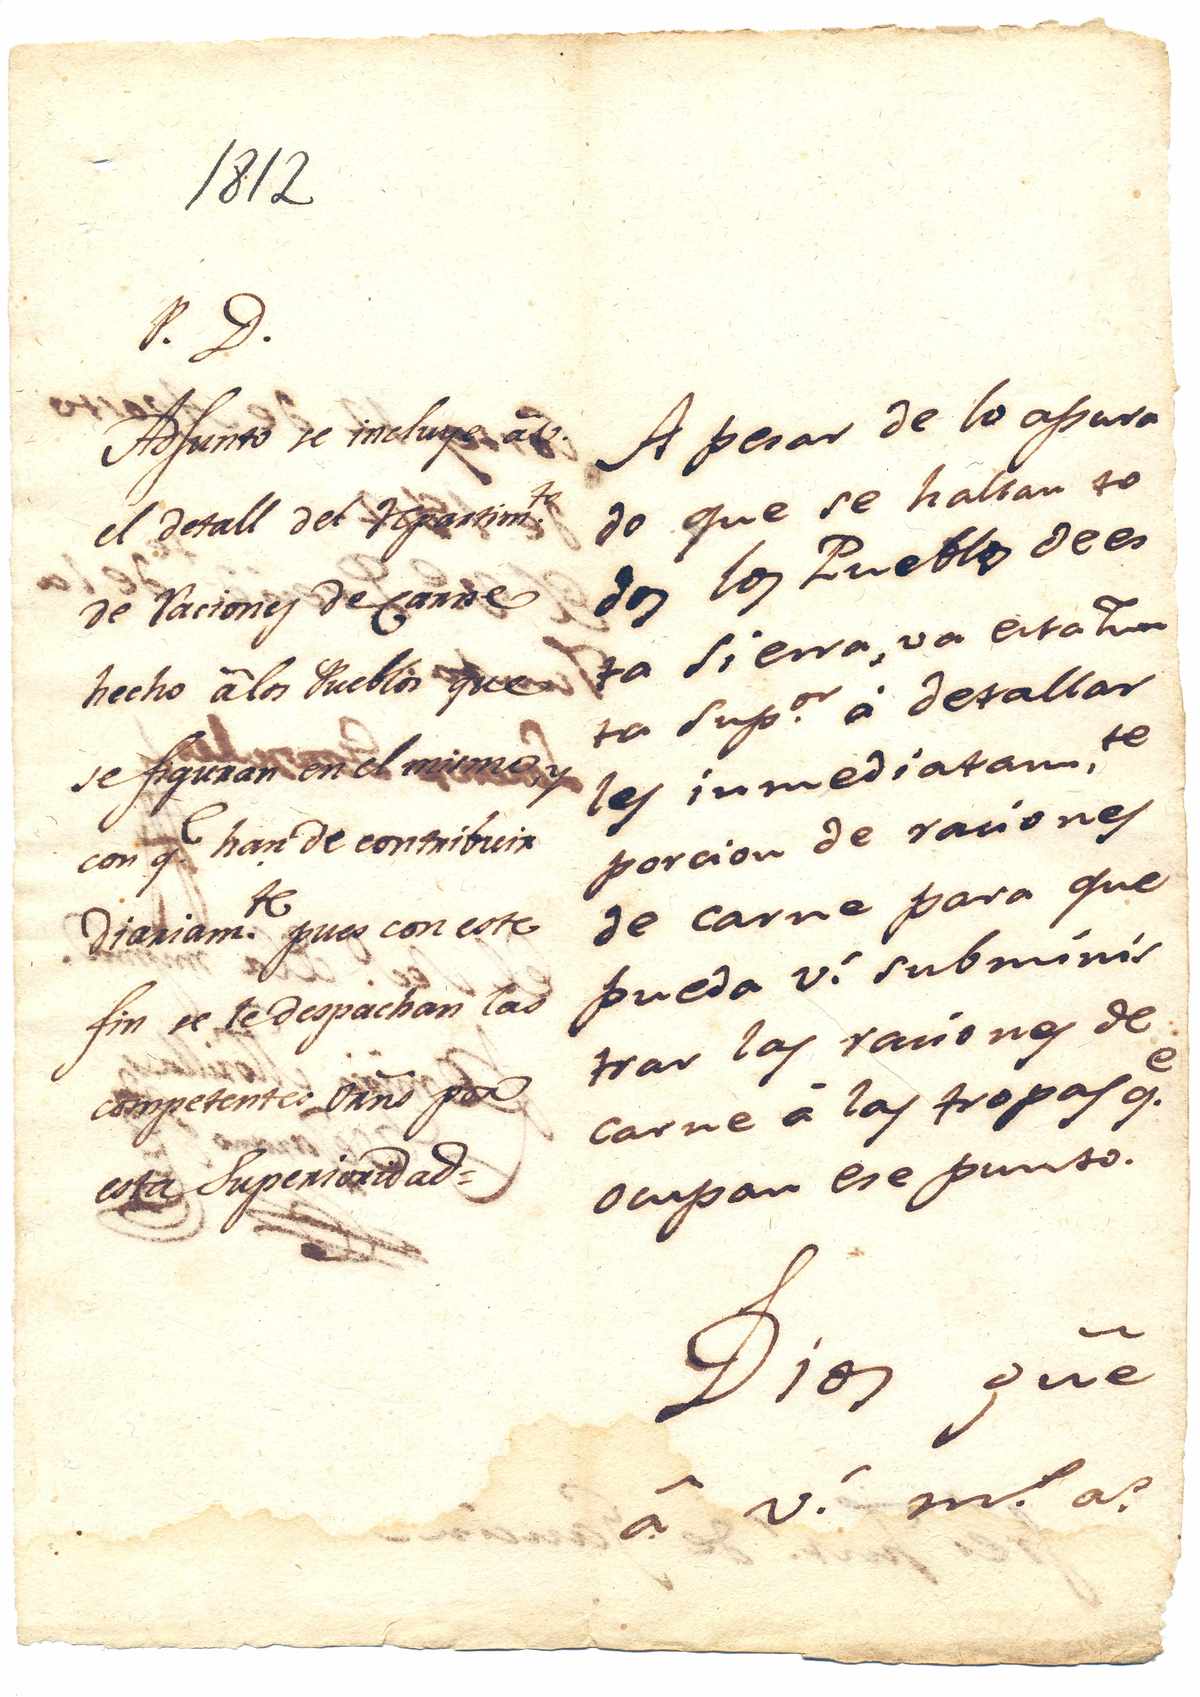 1812
P. D.
Adjunto se incluye â v.
el detall del repartim.to
de raciones de carne
hecho â los Pueblos que
se figuran en el mismo, y
con q.e han de contribuir
diariam.te pues con este
fin se te despachan las
competentes orñs por
esta Superioridad=
A pesar de lo apura
do que se hallan to
dos los Pueblos de es
ta Sierra, va esta Jun
ta Sup.or á detallar
les inmediatam.te
porcion de raciones
de carne para que
pueda v.s subminis
trar las raciones de
carne â las tropas q.e
ocupan ese punto.
Dios gũe
â v.s m.s a.s